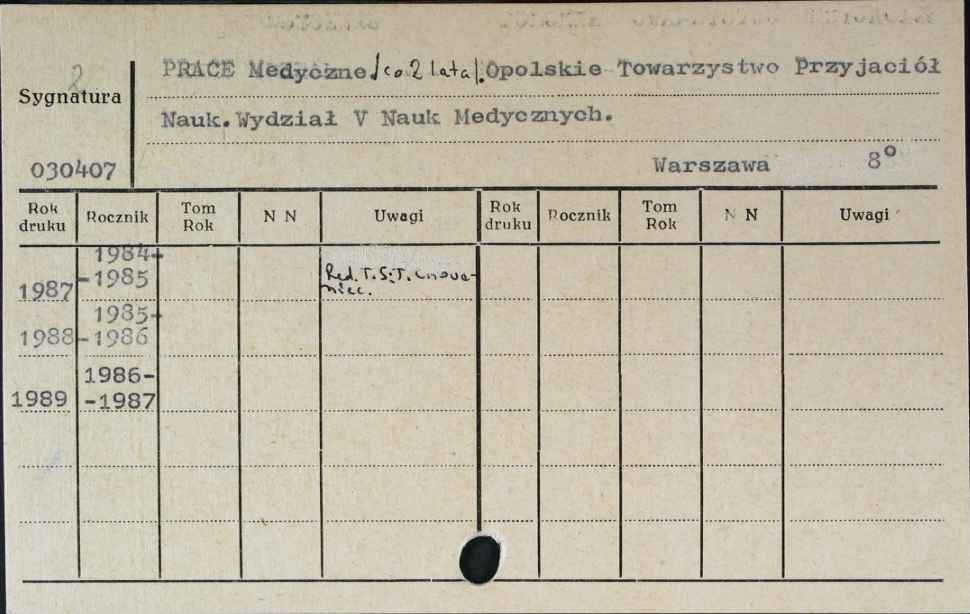 2
PRACE Medyczne./co 2 lata/.Opolskie Towarzystwo Przyjaciół
Sygnatura
Nauk.Wydział V Nauk Medycznych.
030407
Warszawa 8°
Rok druku Rocznik Tom Rok N N Uwagi Rok druku Rocznik Tom Rok N N Uwagi
1984-
1987 -1985 Red. T.S.T.
niec.
1985-
1988 -1986
1986-
1989 -1987